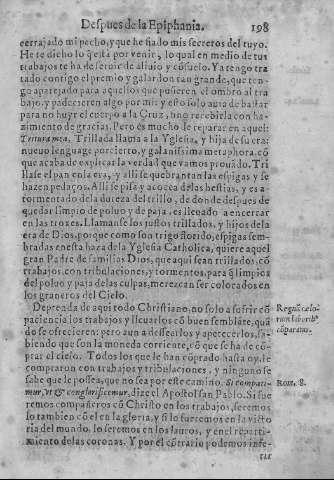 Despues de la Epiphania. 198
cerrajado mi pecho, y que he fiado mis secretos del tuyo.
He te dicho lo q̃ está por venir, lo qual en medio de tus
trabajos te ha de seruir de aliuio y cõsuelo. Ya tengo tra
tado contigo el premio y galardon tan grande, que ten-
go aparejado para aquellos que pusieren el ombro al tra
bajo, y padecieren algo por mi: y esto solo auia de bastar
para no huyr el cuerpo a la Cruz, sino recebirla con ha-
zimiento de gracias. Pero es mucho de reparar en aquel:
Tritura mea. Trillada llama a la Yglesia, y hija de su era:
nueuo lenguage por cierto, y galanissima metaphora, cõ
que acaba de explicar la verdad que vamos prouãdo. Tri
llase el pan en la era, y alli se quebrantan las espigas y se
hazen pedaços. Alli se pisa y acocea de las bestias, y es a-
tormentado de la dureza del trillo, de donde despues de
quedar limpio de poluo y de paja, es lleuado a encerrar
en las troxes. Llamanse los justos trillados, y hijos de la
era de Dios, porque como son trigo florido, espigas sem-
bradas en esta haza de la Yglesia Catholica, quiere aquel
gran Padre de familias Dios, que aqui sean trillados, cõ
trabajos, con tribulaciones, y tormentos, para q̃ limpios
del poluo y paja de culpas, merezcan ser colocados en
los graneros del Cielo.
Deprenda de aqui todo Christiano, no solo a sufrir cõ
paciencia los trabajos y lleuarlos cõ buen semblãte, quã
do se ofrecieren: pero aun a dessearlos y apetecerlos, sa-
biendo que son la moneda corriente, cõ que se ha de cõ-
prar el cielo. Todos los que le han cõprado hasta oy, le
compraron con trabajos y tribulaciones, y ninguno se
sabe que le possea, que no sea por este camino. Si compati-
mur, vt & conglorificemur, dize el Apostol san Pablo. Si fue
remos compañeros cõ Christo en los trabajos, seremos
lo tambien cõ el en la gloria, y si lo fueremos en la victo
ria del mundo, lo seremos en los lauros, y en el reparti-
miento de las coronas. Y por el cõtrario podemos infe-
Regnũ celo-
rum
cõparatur.
Rom. 8.